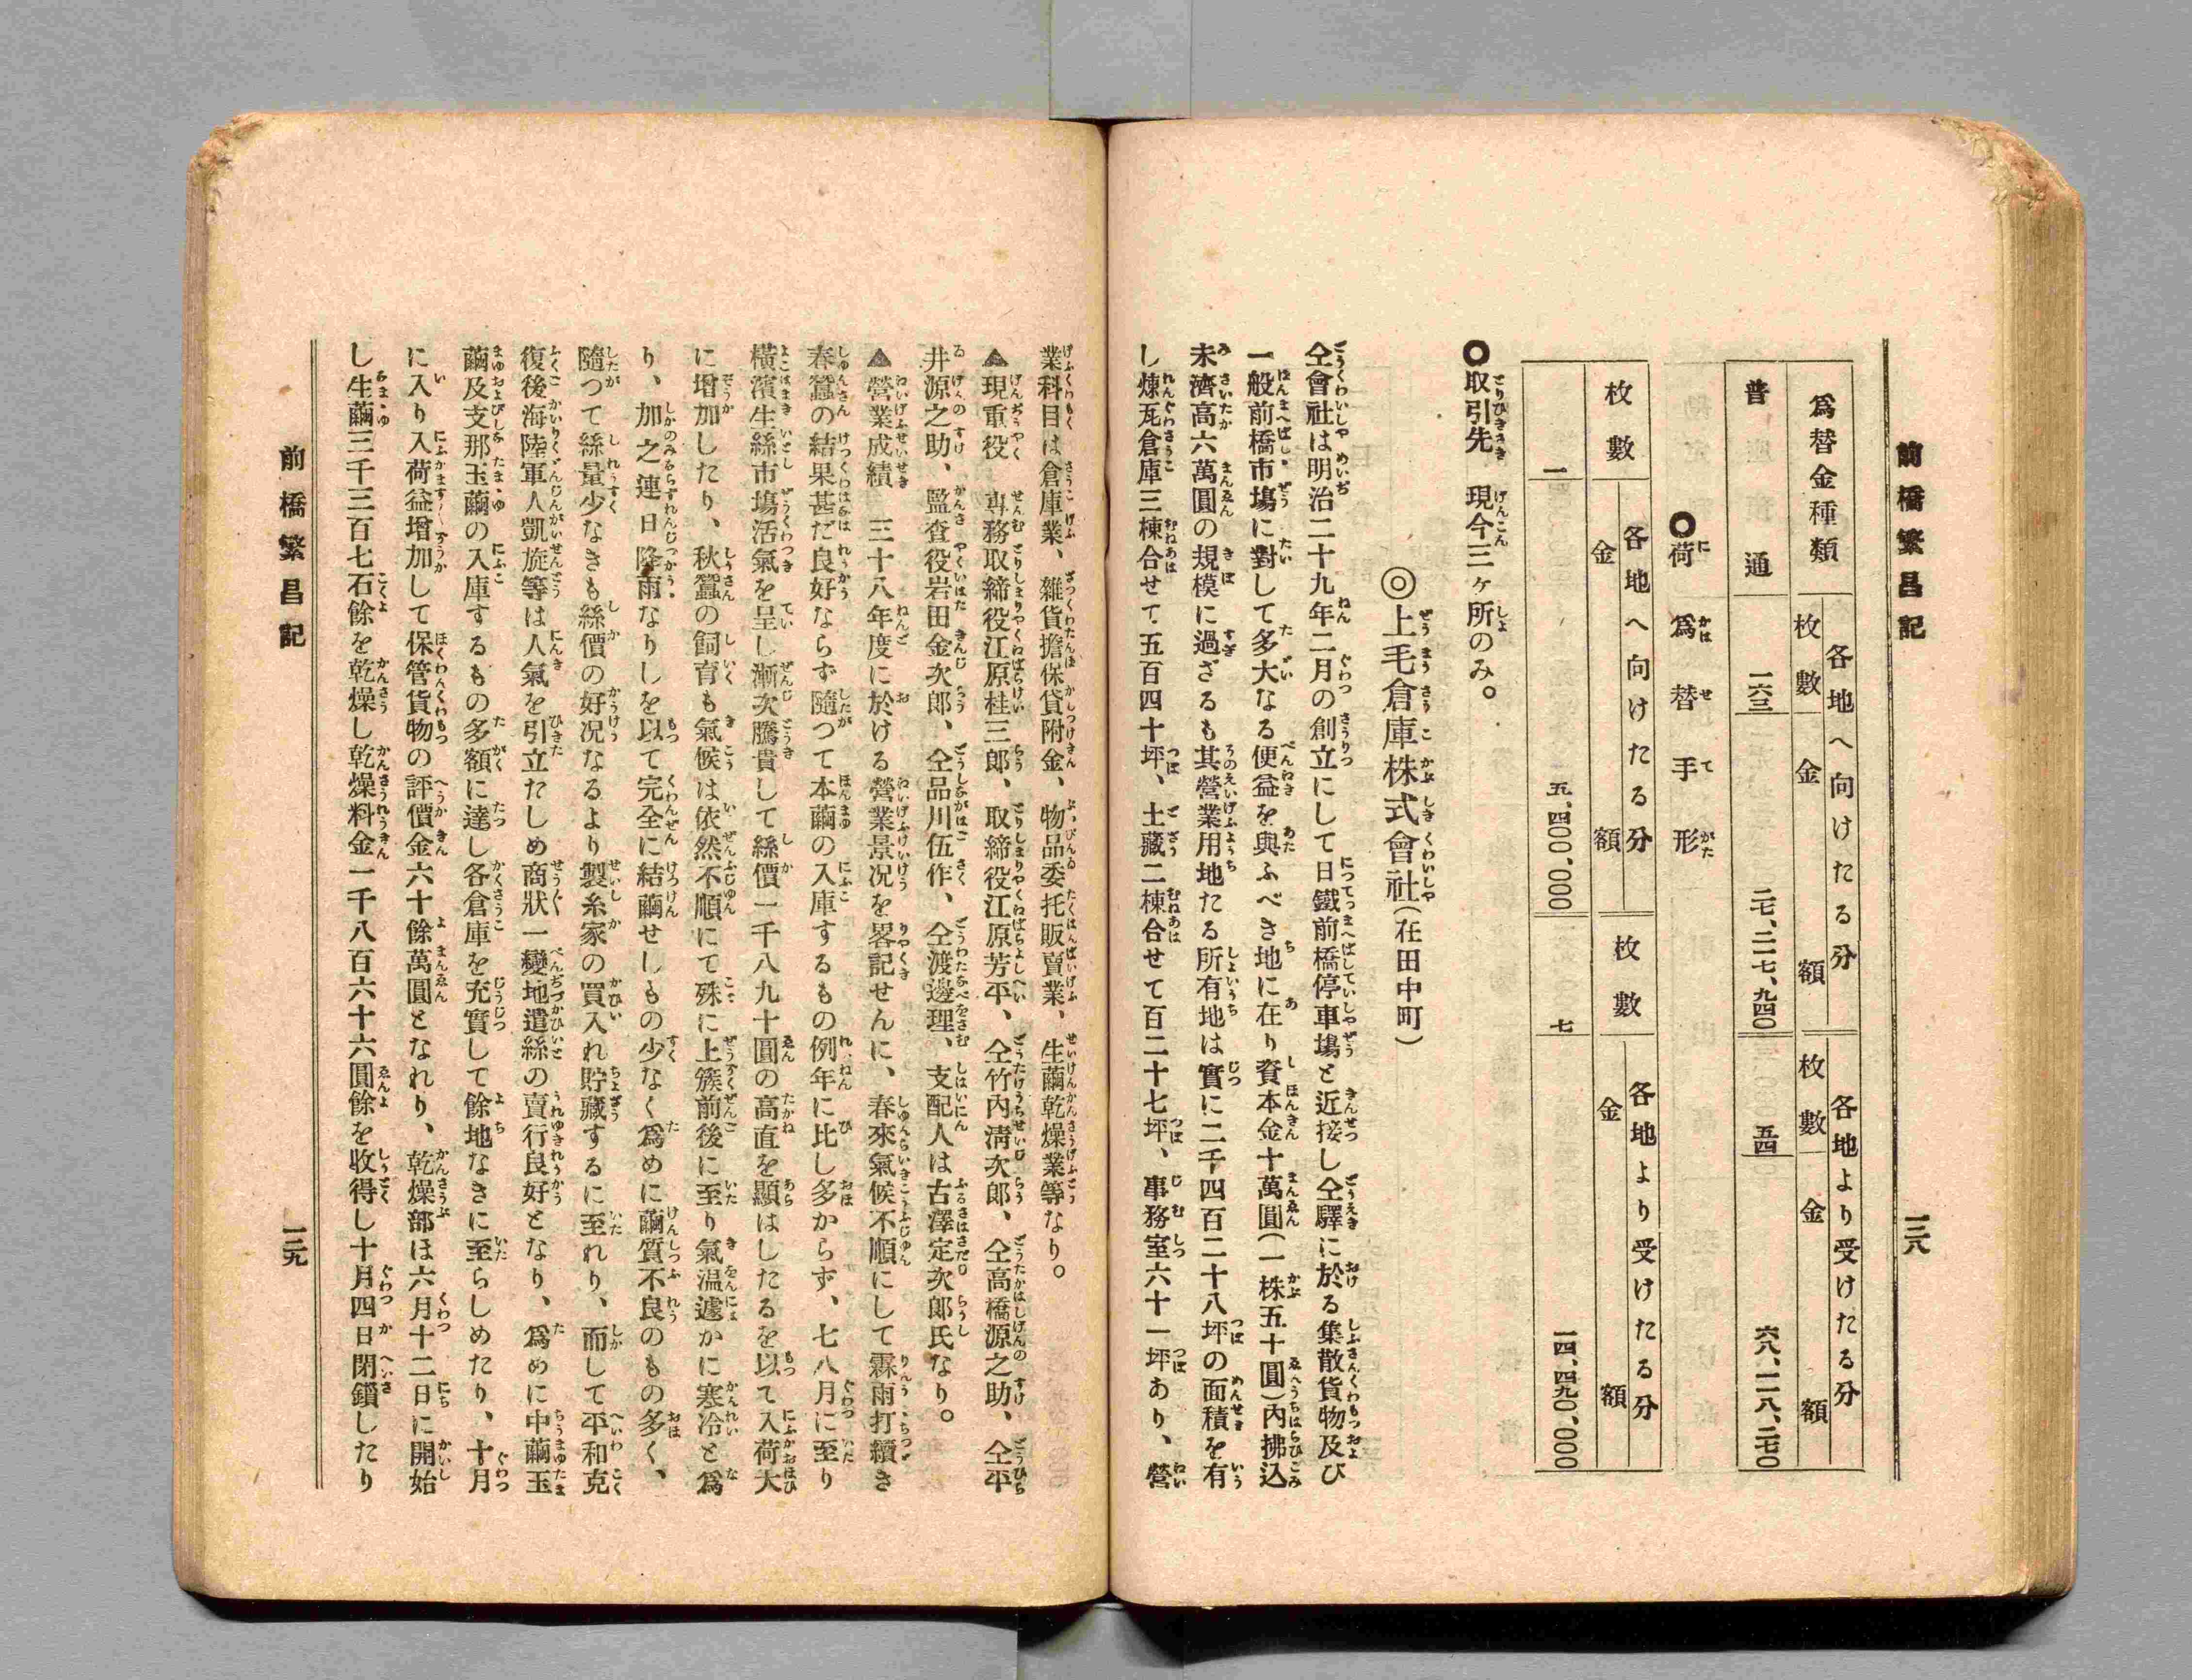 前橋繁昌記
一三八
爲替金種類
各地へ向けたる分
各地より受けたる分
枚數
金額
枚數
金額
普通
一六三
二七、二一七、九四〇
五四
六八、一二八、二七〇
〇荷爲替手形
各地へ向けたる分
各地より受けたる分
枚數
金額
枚數
金額
一
五、四〇〇、〇〇〇
七
一四、四九〇、〇〇〇
〇取引先 現今三ヶ所のみ。
◎上毛倉庫株式會社(在田中町)
仝會社は明治二十九年二月の創立にして日鐵前橋停車塲と近接し仝驛に於る集散貨物及び
一般前橋市塲に對して多大なる便益を與ふべき地に在り資本金十萬圓(一株五十圓)內拂込
未濟高六萬圓の規模に過ざるも其營業用地たる所有地は實に二千四百二十八坪の面積を有
し煉瓦倉庫三棟合せて五百四十坪、土藏二棟合せて百二十七坪、事務室六十一坪あり、營
業科目は倉庫業、雜貨擔保貸附金、物品委托販賣業、生繭乾燥業等なり。
▲現重役 専務取締役江原桂三郎、取締役江原芳平、仝竹內淸次郎、仝高橋源之助、仝平
井源之助、監査役岩田金次郎、仝品川伍作、仝渡邊理、支配人は古澤定次郎氏なり。
▲營業成績 三十八年度に於ける營業景況を畧記せんに、春來氣候不順にして霖雨打續き
春蠶の結果甚だ良好ならず隨つて本繭の入庫するもの例年に比し多からず、七八月に至り
橫濱生絲市塲活氣を呈し漸次騰貴して絲價一千八九十圓の高直を顯はしたるを以て入荷大
に增加したり、秋蠶の飼育も氣候は依然不順にて殊に上簇前後に至り氣温遽かに寒冷と爲
り、加之連日降雨なりしを以て完全に結繭せしもの少なく爲めに繭質不良のもの多く、
隨つて絲量少なきも絲價の好況なるより製糸家の買入れ貯藏するに至れり、而して平和克
復後海陸軍人凱旋等は人氣を引立たしめ商狀一變地遣絲の賣行良好となり、爲めに中繭玉
繭及支那玉繭の入庫するもの多額に達し各倉庫を充實して餘地なきに至らしめたり、十月
に入り入荷益增加して保管貨物の評價金六十餘萬圓となれり、乾燥部は六月十二日に開始
し生繭三千三百七石餘を乾燥し乾燥料金一千八百六十六圓餘を收得し十月四日閉鎖したり
前橋繁昌記
一三九